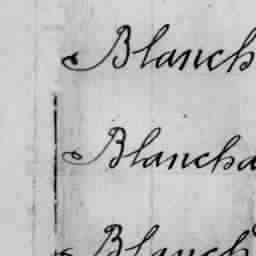 Blanch
Blancha
Blanch